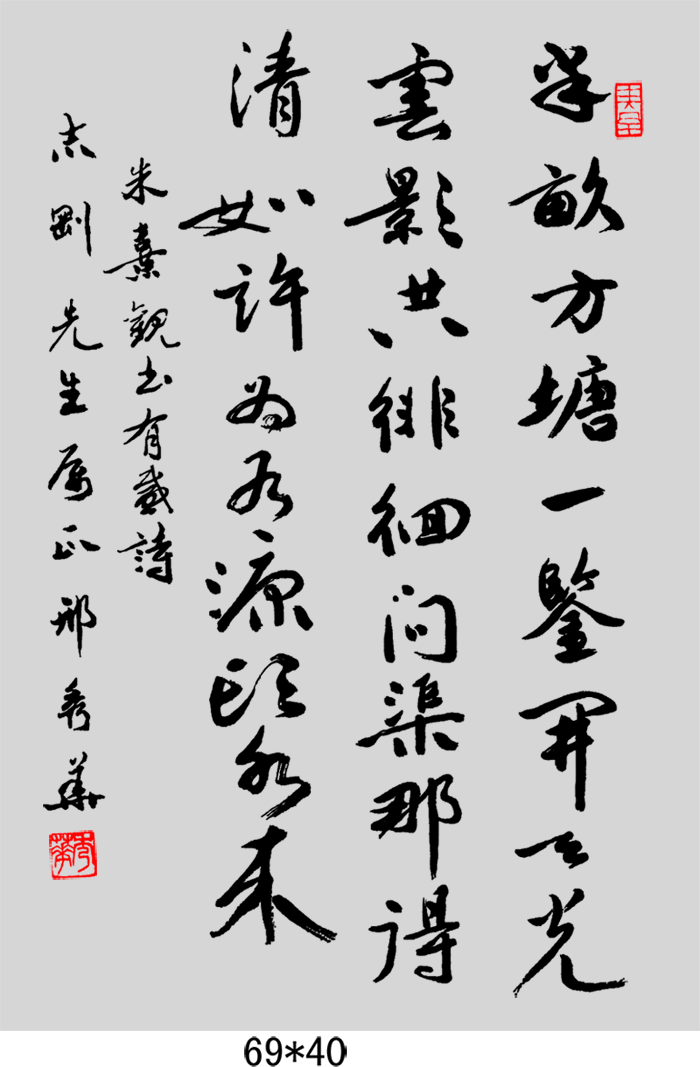 半畝方塘一鑒開天光
雲影共徘徊问渠那得
清如許为有源頭水来
朱熹觀书有感詩
志剛先生属正邢秀華
秀華
69*40